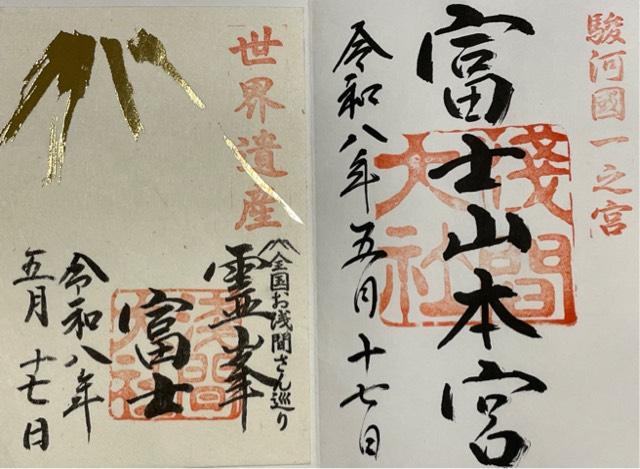 世界遺産
全国お浅間さん巡り
霊峯
富士
浅間
大社
令和八年
五月十七日
駿河國一之宮
富士山本宮
淺間
大社
令和八年五月十七日